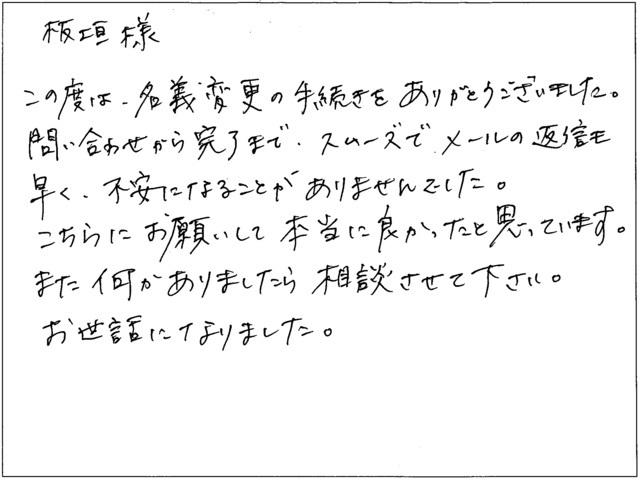 板垣様
この度は、名義変更の手続きをありがとうございました。
問い合わせから完了まで、スムーズでメールの返信も
早く、不安になることがありませんでした。
こちらにお願いして本当に良かったと思っています。
また何かありましたら相談させて下さい。
お世話になりました。